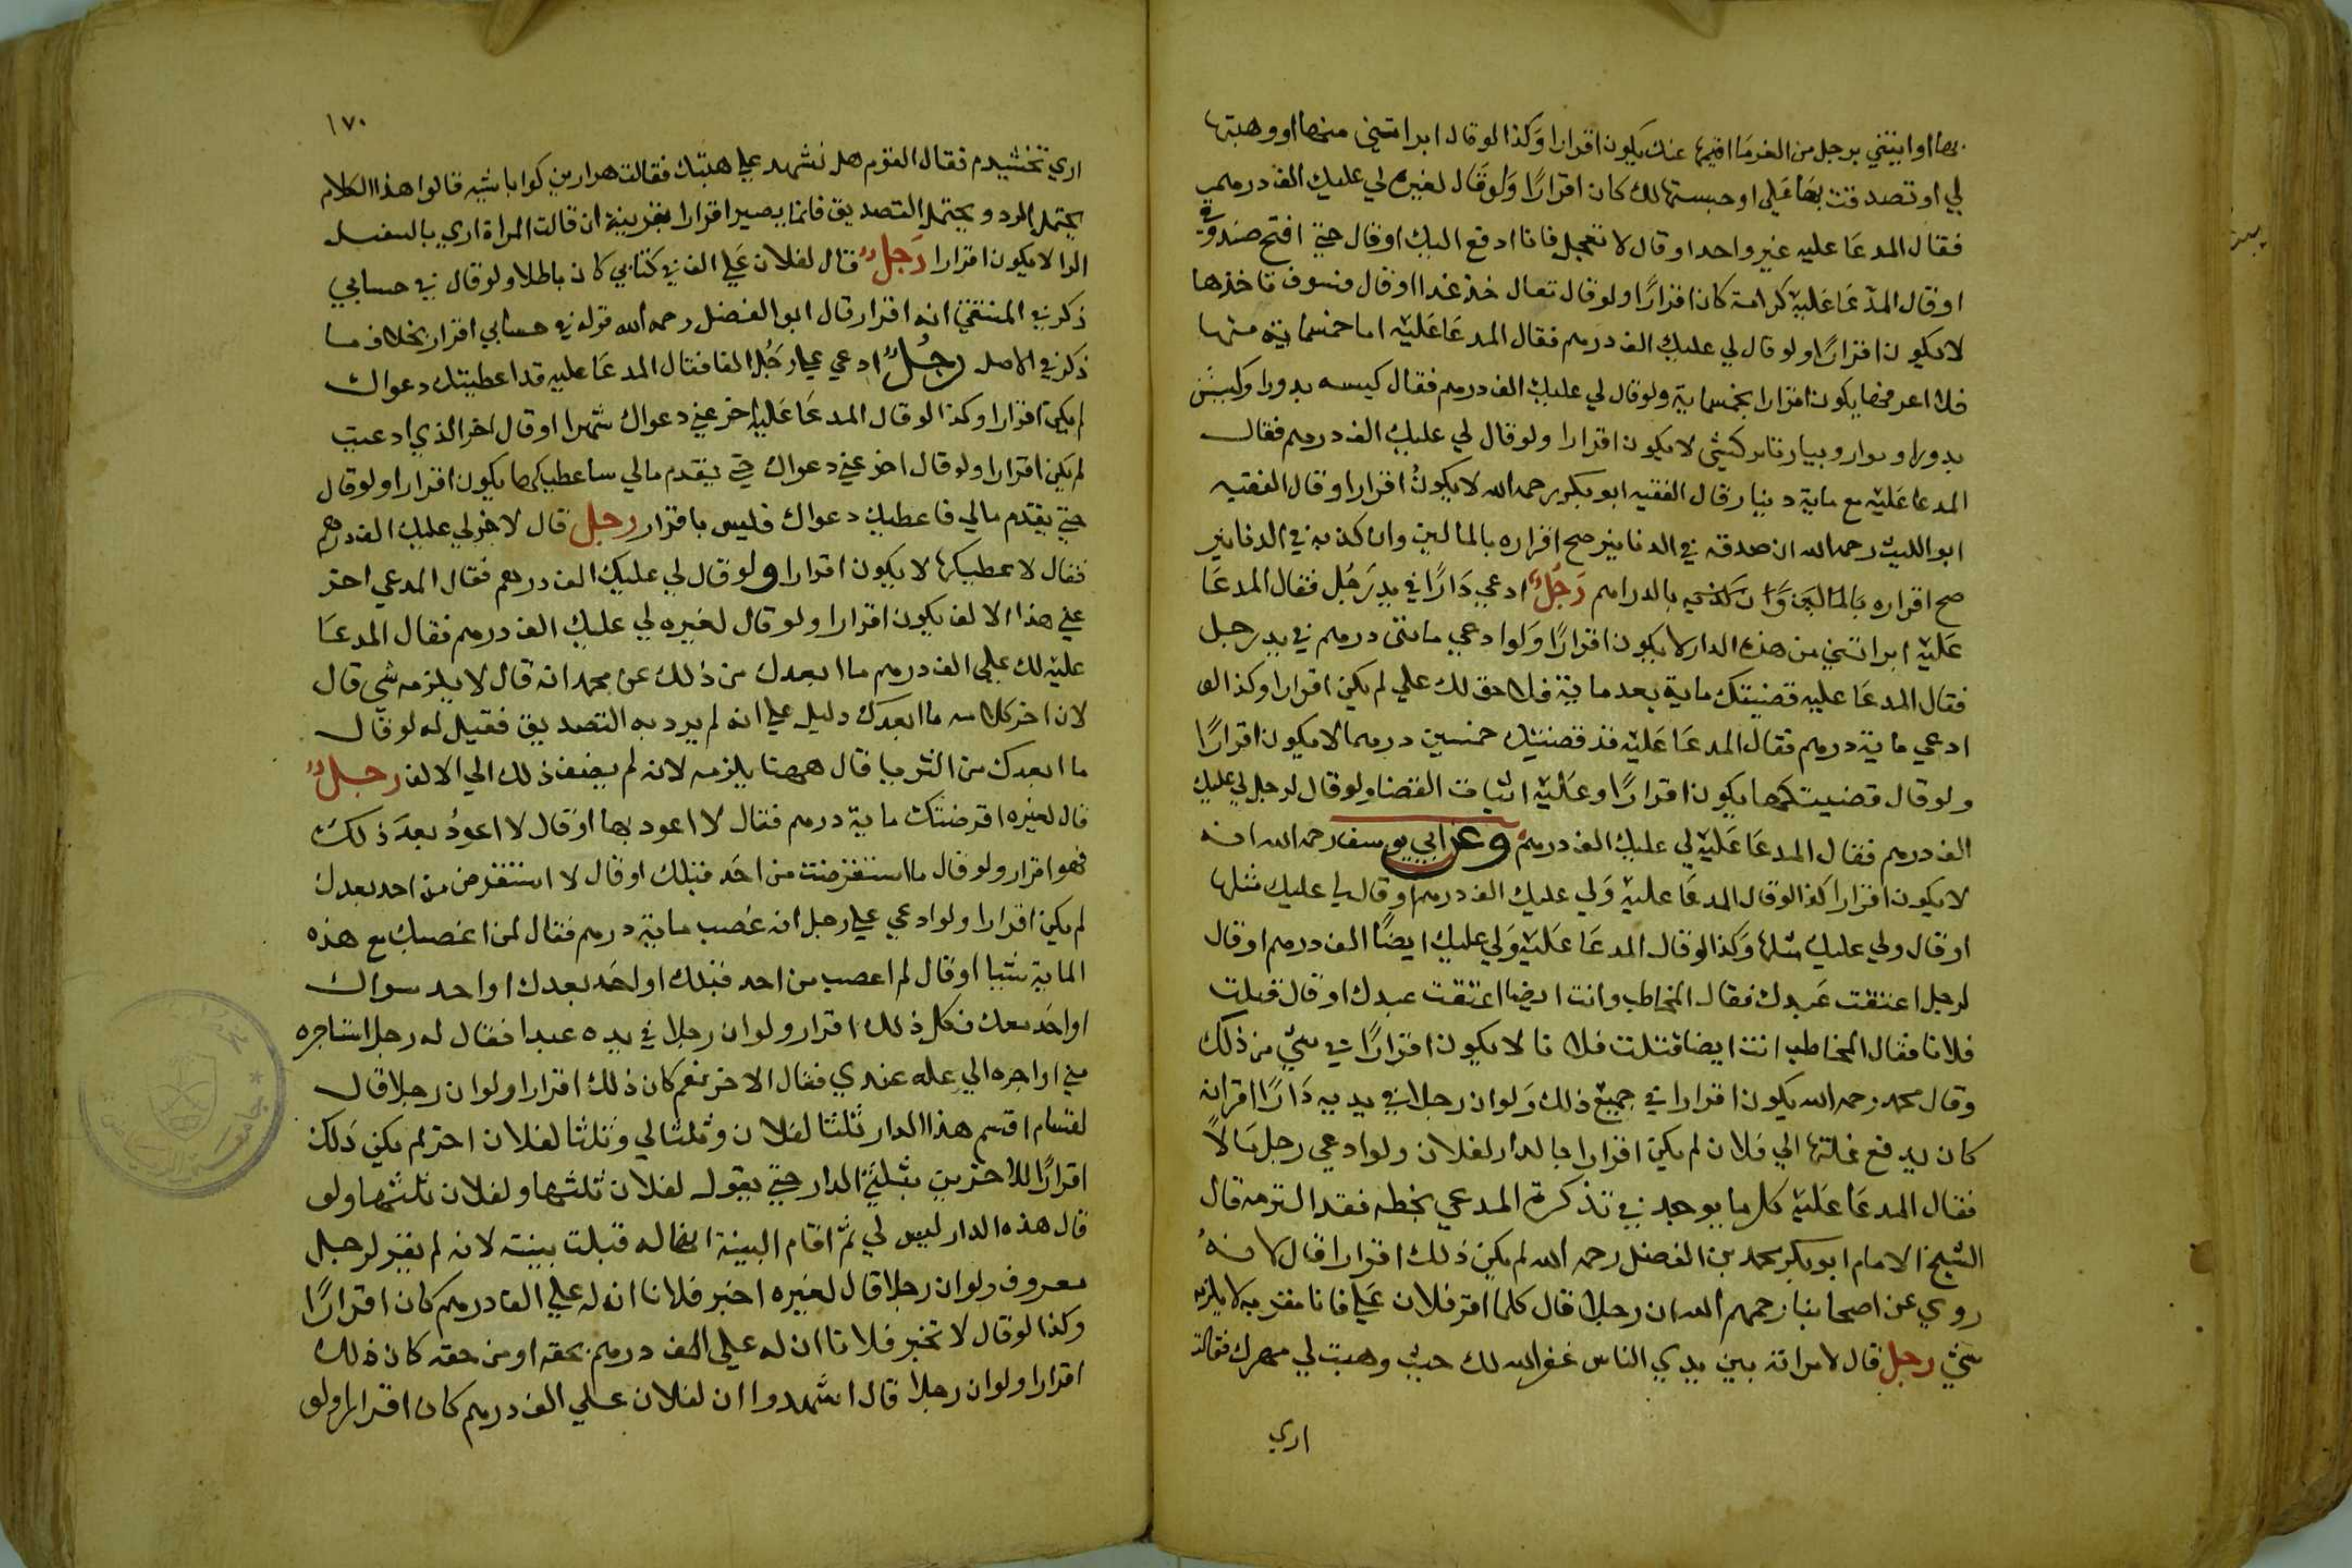 بها او ايتني برجل من الغرما اقيمها عنك يكون اقرارا وكذا لو قال ابراتني منها او وهبتها
لي او تصدقت بها علي او حبستها لك كان اقرارًا ولو قال لغيره لي عليك الف درهم
فقال المدعا عليه غير واحد او قال لا تعجل فانا ادفع اليك او قال حتي افتح صندوقي
او قال المدعا عليه كرامة كان اقرارًا ولو قال تعال خذ غدا او قال فسوف تاخذها
لا يكون اقرارًا ولو قال لي عليك الف درهم فقال المدعا عليه اما خمسماية منها
فلا اعرفها يكون اقرارا بخمسماية ولو قال لي عليك الف درهم فقال كيسه بدورا وكيش
المدعا عليه مع ماية دينار قال الفقيه ابو بكر رحمه الله لا يكون اقرارا وقال الفقيه
ابو الليث رحمه الله ان صدقه في الدنانير صح اقراره بالمالين وان كذبه في الدنانير
صح اقراره بالمالين وان كذبه بالدراهم رجل ادعي دارًا في يد رجل فقال المدعا
عليه ابراتني من هذه الدار لا يكون اقرارًا ولو ادعي مائتي درهم في يد رجل
فقال المدعا عليه قضيتك ماية بعد ماية فلا حق لك علي لم يكن اقرارا وكذا لو
ادعي ماية درهم فقال المدعا عليه قد قضيتك خمسين درهما لا يكون اقرارًا
ولو قال قضيتكها يكون اقرارًا وعليه اثبات القضا ولو قال لرجل لي عليك
الف درهم فقال المدعا عليه لي عليك الف درهم وعن ابي يوسف رحمه الله انه
لا يكون اقرارا كذا لو قال المدعا عليه ولي عليك الف درهم او قال لي عليك مثلها
او قال ولي عليك مثلها وكذا لو قال المدعا عليه ولي عليك ايضًا الف درهم او قال
لرجل اعتقت عبدك فقال المخاطب وانت ايضا اعتقت عبدك او قال قتلت
فلانا فقال المخاطب انت ايضا قتلت فلانا لا يكون اقرارًا في شي من ذلك
وقال محمد رحمه الله يكون اقرارا في جميع ذلك ولو ان رجلا في يديه دارًا اقر انه
كان يدفع غلتها الي فلان لم يكن اقرارا بالدار لفلان ولو ادعي رجل مالًا
فقال المدعا عليه كل ما يوجد في تذكرة المدعي بخطه فقد التزمه قال
الشيخ الامام ابو بكر محمد بن الفضل رحمه الله لم يكن ذلك اقرارا قال لانه
روي عن اصحابنا رحمهم الله ان رجلا قال كلما اقر فلان علي فانا مقر به لا يلزمه
شي رجل قال لامراته بين يدي الناس غفر الله لك حيث وهبت لي مهرك فقالت
اري
١٧٠
اري بخشيدم فقال القوم هل نشهد علي هبتك فقالت هزار من كوا باشيد قالوا هذا الكلام
يحتمل الرد ويحتمل التصديق فانما يصير اقرارا بقرينة ان قالت المراة اري
لا يكون اقرارا رجل قال لفلان علي الف في كتابي كان باطلا ولو قال في حسابي
ذكر في المنتقي انه اقرار قال ابو الفضل رحمه الله قوله في حسابي اقرار بخلاف ما
ذكر في الاصل رجل ادعي علي رجل الفا فقال المدعا عليه قد اعطيتك دعواك
لم يكن اقرارا وكذا لو قال المدعا عليه اخر عني دعواك شهرا او قال اخر الذي ادعيت
لم يكن اقرارا ولو قال اخر عني دعواك حتي يقدم مالي ساعطيكها يكون اقرارا ولو قال
حتي يقدم مالي فاعطيك دعواك فليس باقرار رجل قال لاخر لي عليك الف درهم
فقال لاعطيكها لا يكون اقرارا ولو قال لي عليك الف درهم فقال المدعي اخر
عني هذا الالف يكون اقرارا ولو قال لغيره لي عليك الف درهم فقال المدعا
عليه لك علي الف درهم ما ابعدك من ذلك عن محمد انه قال لا يلزمه شي قال
لان اخر كلامه ما ابعدك دليل علي انه لم يرد به التصديق فقيل له لو قال
ما ابعدك من الثريا قال ههنا يلزمه لانه لم يضف ذلك الي الالف رجل
قال لغيره اقرضتك ماية درهم فقال لا اعود بها او قال لا اعود بعد ذلك
فهو اقرار ولو قال ما استقرضت من احد قبلك او قال لا استقرض من احد بعدك
لم يكن اقرارا ولو ادعي علي رجل انه غصب ماية درهم فقال لمن اغصبك مع هذه
الماية شيا او قال لم اغصب من احد قبلك او احد بعدك او احد سواك
او احد معك فكل ذلك اقرار ولو ان رجلا في يده عبدا فقال له رجل استاجره
مني او اجره الي غله عندي فقال الاخر نعم كان ذلك اقرارا ولو ان رجلا قال
لقسام اقسم هذا الدار ثلثا لفلان وثلثا لي وثلثا لفلان اخر لم يكن ذلك
اقرارًا للاخرين بثلثي الدار حتي يقول لفلان ثلثها ولفلان ثلثها ولو
قال هذه الدار ليس لي ثم اقام البينة انها له قبلت بينته لانه لم يقر لرجل
معروف ولو ان رجلا قال لغيره اخبر فلانا ان له علي الف درهم كان اقرارًا
وكذا لو قال لا تخبر فلانا ان له علي الف درهم بحقه او من حقه كان ذلك
اقرارا ولو ان رجلا قال اشهدوا ان لفلان علي الف درهم كان اقرارا ولو